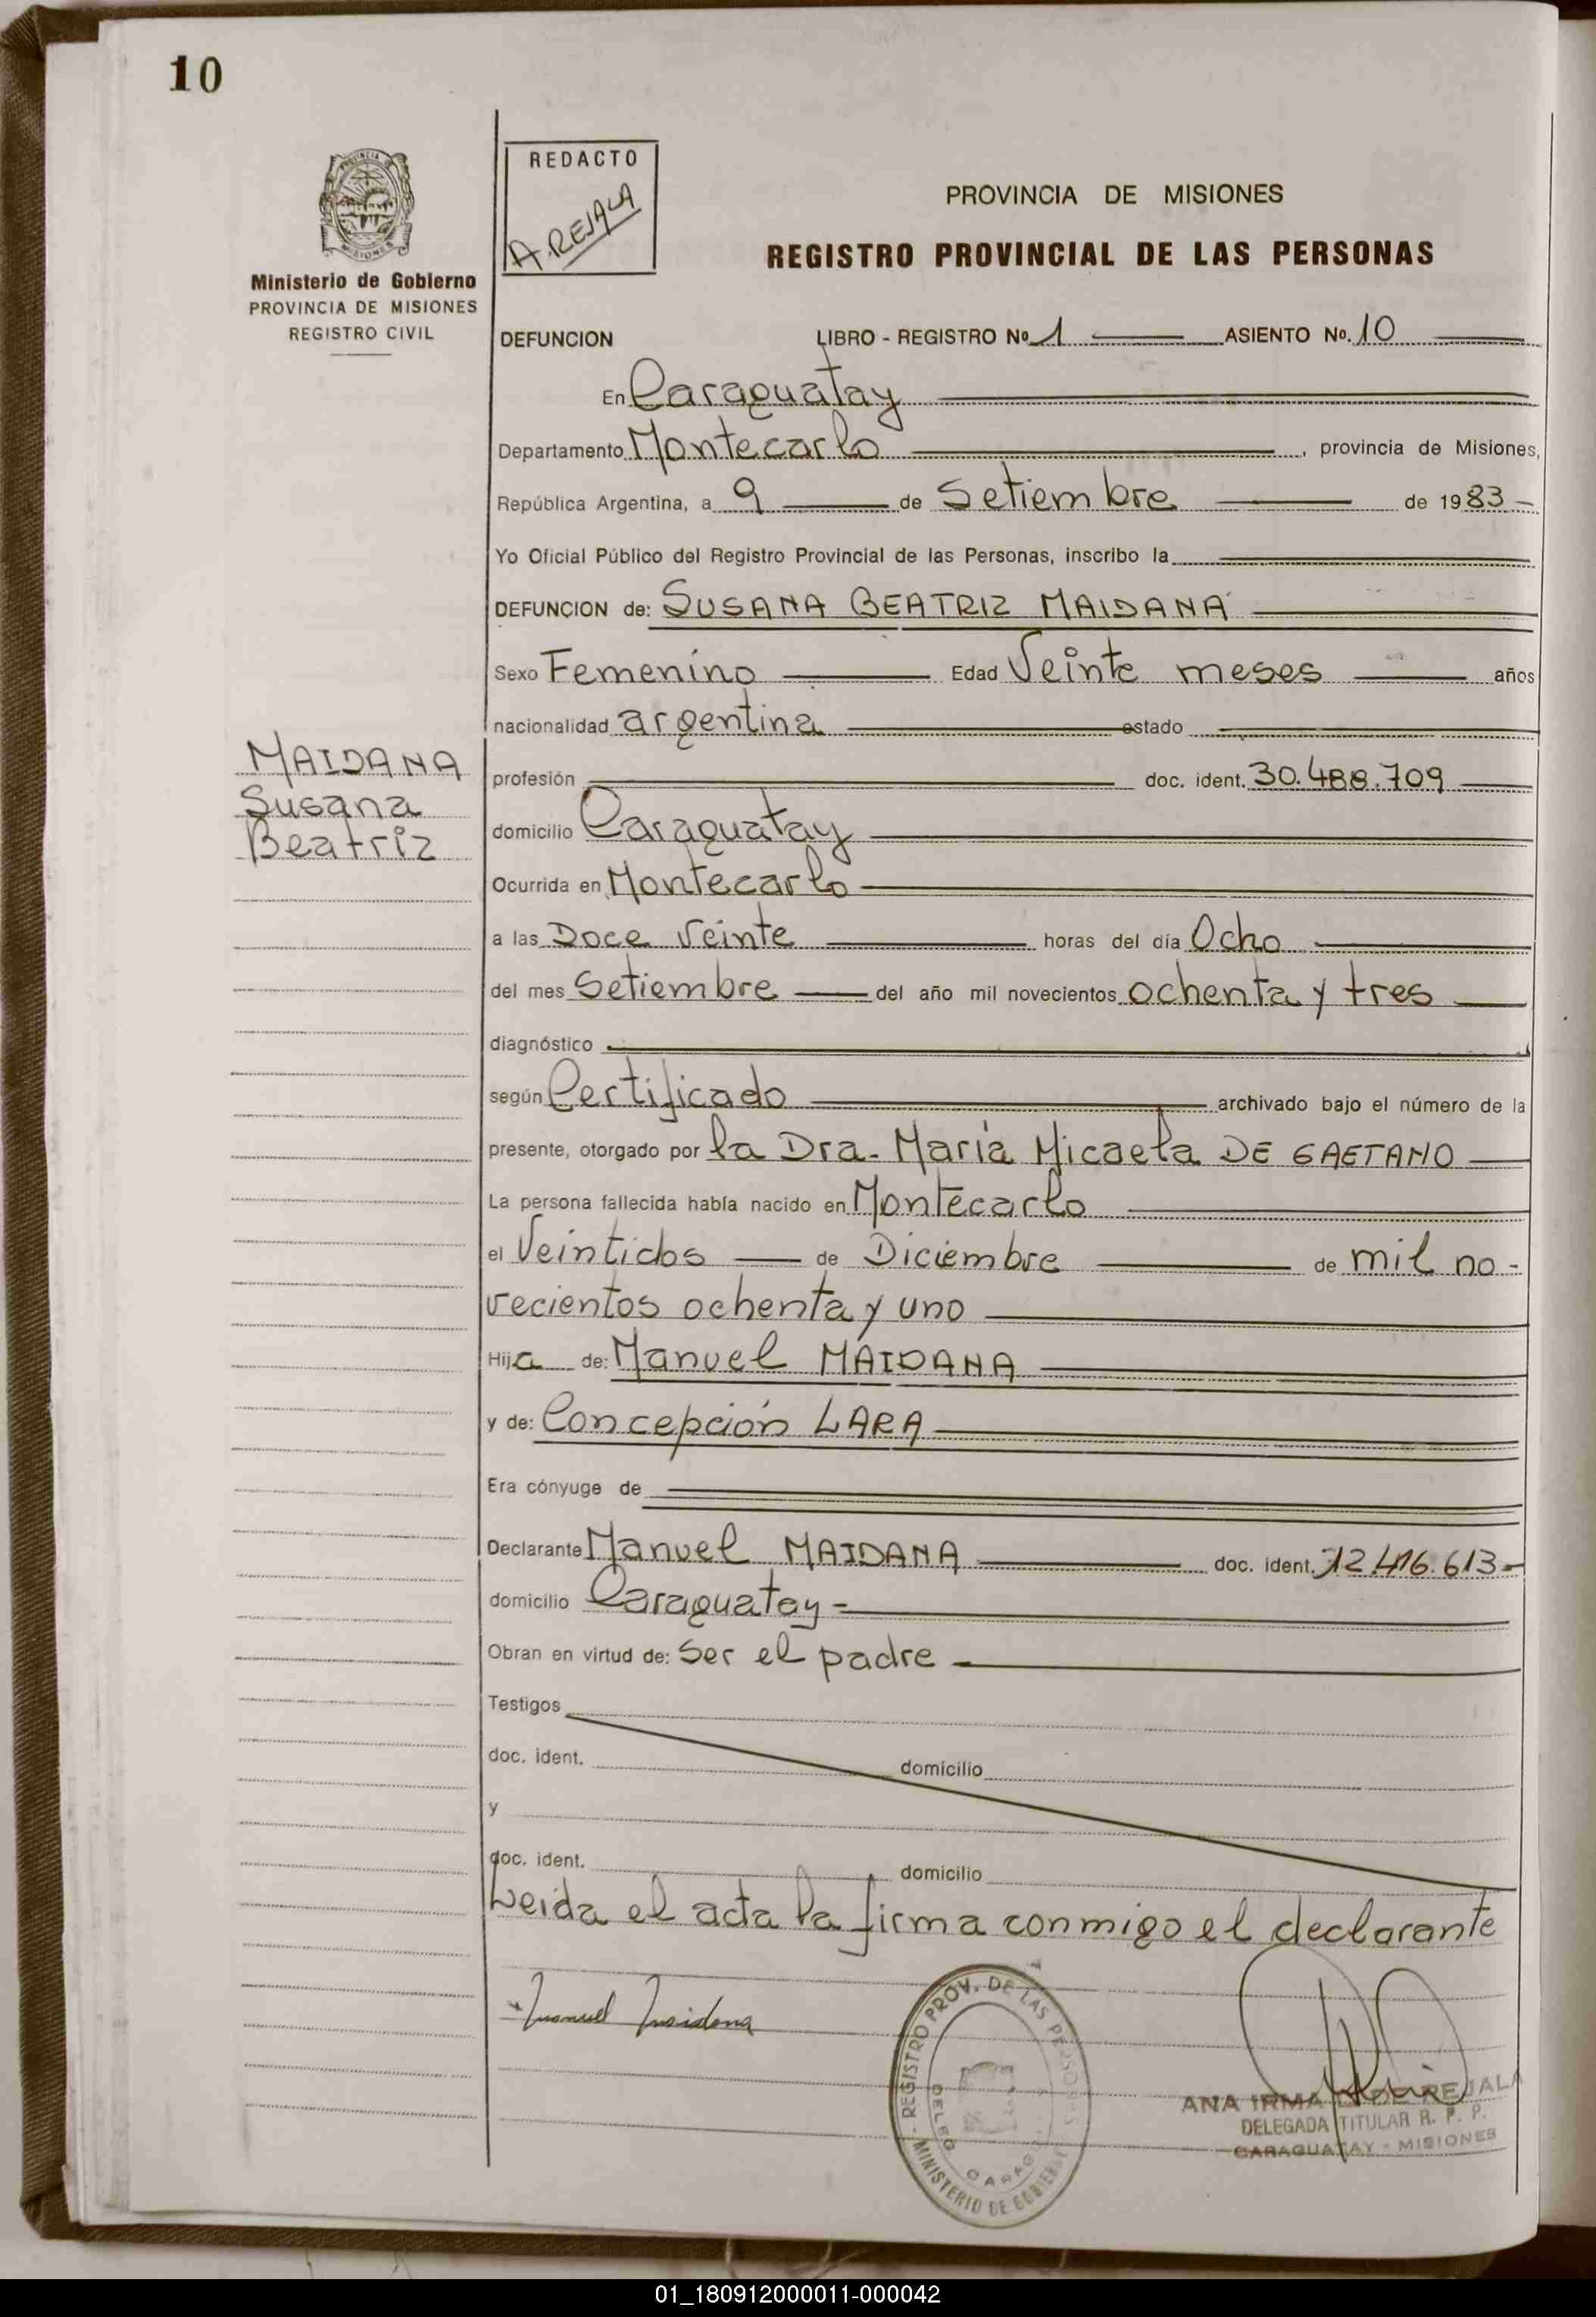 10
PROVINCIA DE
MISIONES
Ministerio de Gobierno
PROVINCIA DE MISIONES
REGISTRO CIVIL
REDACTO
A. REJALA
PROVINCIA DE MISIONES
REGISTRO PROVINCIAL DE LAS PERSONAS
DEFUNCION LIBRO - REGISTRO Nº 1 ASIENTO Nº. 10
En Caraguatay
Departamento Montecarlo , provincia de Misiones,
República Argentina, a 9 de Setiembre de 1983 -
Yo Oficial Público del Registro Provincial de las Personas, inscribo la
DEFUNCION de: SUSANA BEATRIZ MAIDANA
Sexo Femenino Edad Veinte meses años
nacionalidad argentina estado
MAIDANA
Susana
Beatriz
profesión doc. ident. 30.488.709
domicilio Caraguatay
Ocurrida en Montecarlo
a las Doce Veinte horas del día Ocho
del mes Setiembre del año mil novecientos ochenta y tres
diagnóstico
según Certificado archivado bajo el número de la
presente, otorgado por la Dra. María Micaela DE GAETANO
La persona fallecida había nacido en Montecarlo
el Veintidos de Diciembre de mil no-
vecientos ochenta y uno
Hija de: Manuel MAIDANA
y de: Concepción LARA
Era cónyuge de
Declarante Manuel MAIDANA doc. ident. 12.416.613-
domicilio Caraguatay-
Obran en virtud de: Ser el padre
Testigos
doc. ident. domicilio
y
doc. ident. domicilio
Leida el acta la firma conmigo el declarante
Manuel Maidana
REGISTRO PROV. DE LAS PERSONAS
MINISTERIO DE GOBIERNO
DELEG CARAG
ANA IRMA DE REJALA
DELEGADA TITULAR R. P. P.
CARAGUATAY - MISIONES
01_180912000011-000042